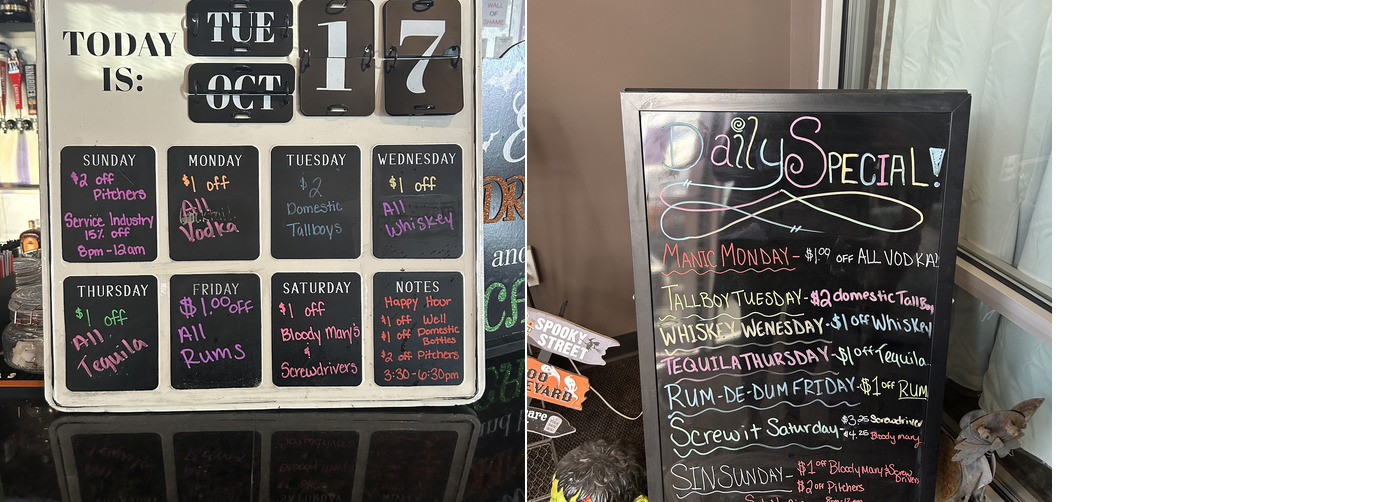 WALL
OF
SHAME
TODAY
IS:
TUE
OCT
17
SUNDAY
$2 off
Pitchers
Service Industry
15% off
8pm-12am
MONDAY
$1 off
All
Vodka
TUESDAY
$2
Domestic
Tallboys
WEDNESDAY
$1 off
All
Whiskey
THURSDAY
$1 off
All
Tequila
FRIDAY
$1.00 off
All
Rums
SATURDAY
$1 off
Bloody Mary's
&
Screwdrivers
NOTES
Happy Hour
$1 off Well
$1 off Domestic
Bottles
$2 off Pitchers
3:30-6:30pm
and
Daily SPECIAL!
MANIC MONDAY- $1.00 OFF ALL VODKA!
TALLBOY TUESDAY-$2 domestic TallBoy
WHISKEY WENESDAY-$1 off Whiskey
TEQUILA THURSDAY-$1 off Tequila
RUM-DE-DUM FRIDAY-$1 off RUM
Screw it Saturday-$3.25 Screwdriver
$4.25 Bloody mary
SIN SUNDAY-$1 off Bloody Mary & Screw
Drivers
$2 off Pitchers
SPOOKY
STREET